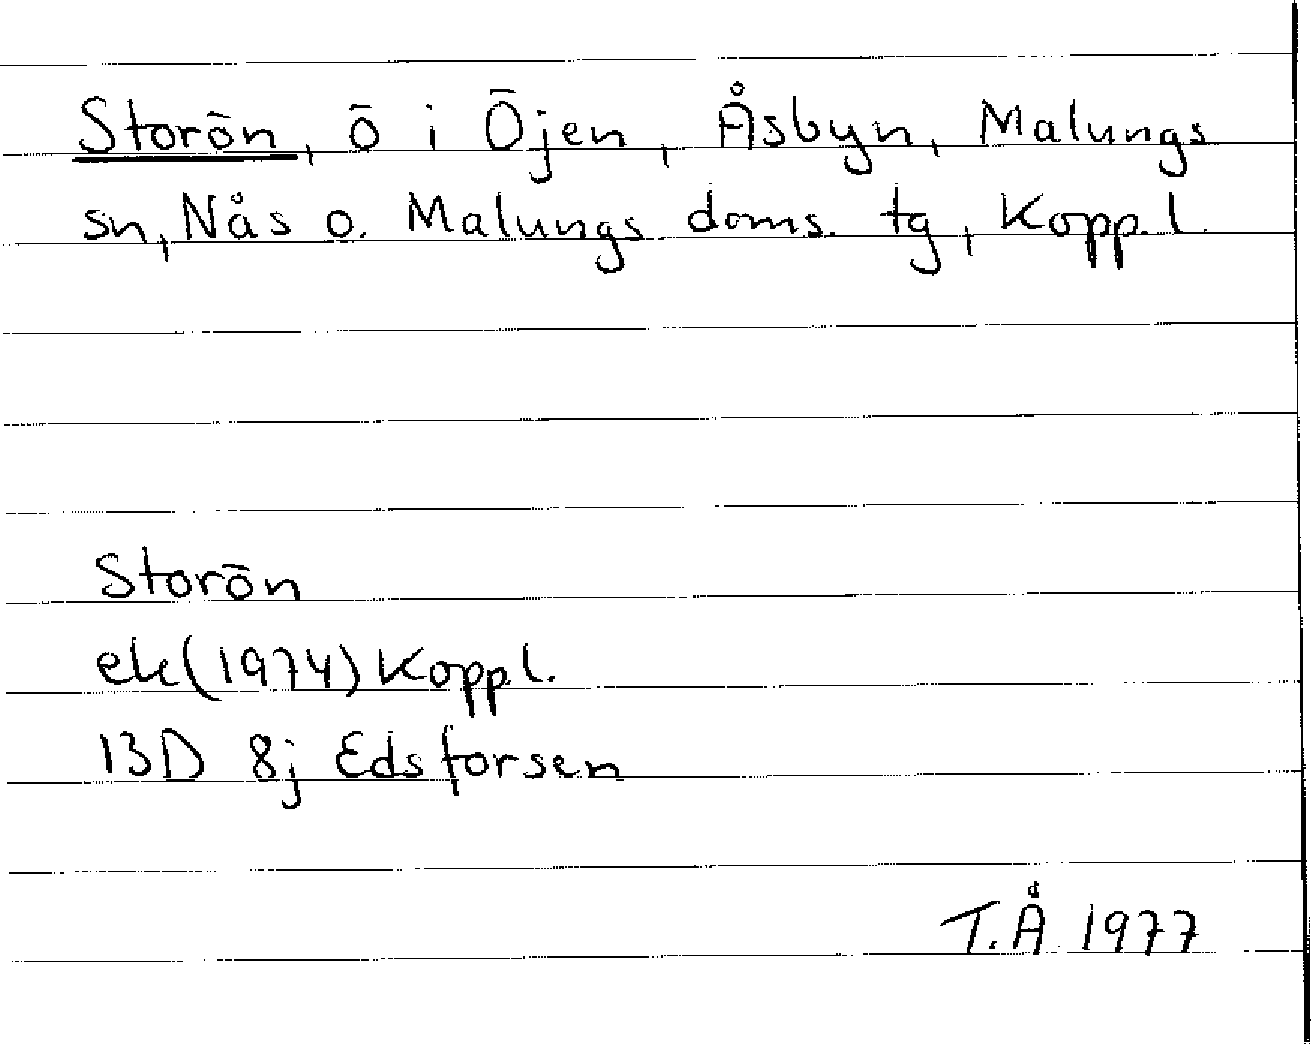 Storön, ö i Öjen, Åsbyn, Malungs
sn, Nås o. Malungs doms. tg, Kopp. l.
Storön
ek (1974) Kopp l.
13D 8j Edsforsen
T.Å 1977